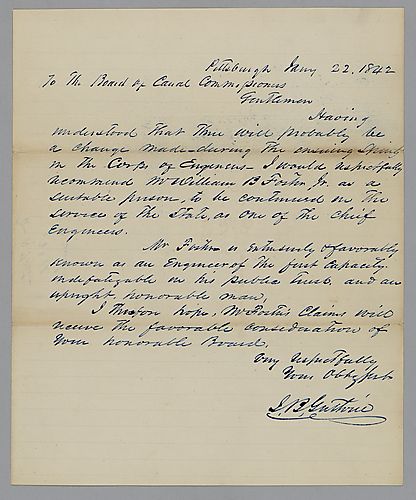 Pittsburgh Jany 22. 1842
To The Board of Canal Commissioners
Gentlemen
Having
understood that there will probably be
a change made during the ensuing Spring
in the Corps of Engineers I would respectfully
recommend Mr William B Foster Jr. as a
suitable person, to be continued in the
service of the State as one of the Chief
Engineers.
Mr Foster is extensively & favorably
known as an Engineer of the first Capacity.
indefatigable in his public trust, and an
upright, honorable man.
I therefore hope, Mr Foster's Claims will
receive the favorable consideration of
Your honorable Board.
Very respectfully
Your Obt
J. B. Guthrie